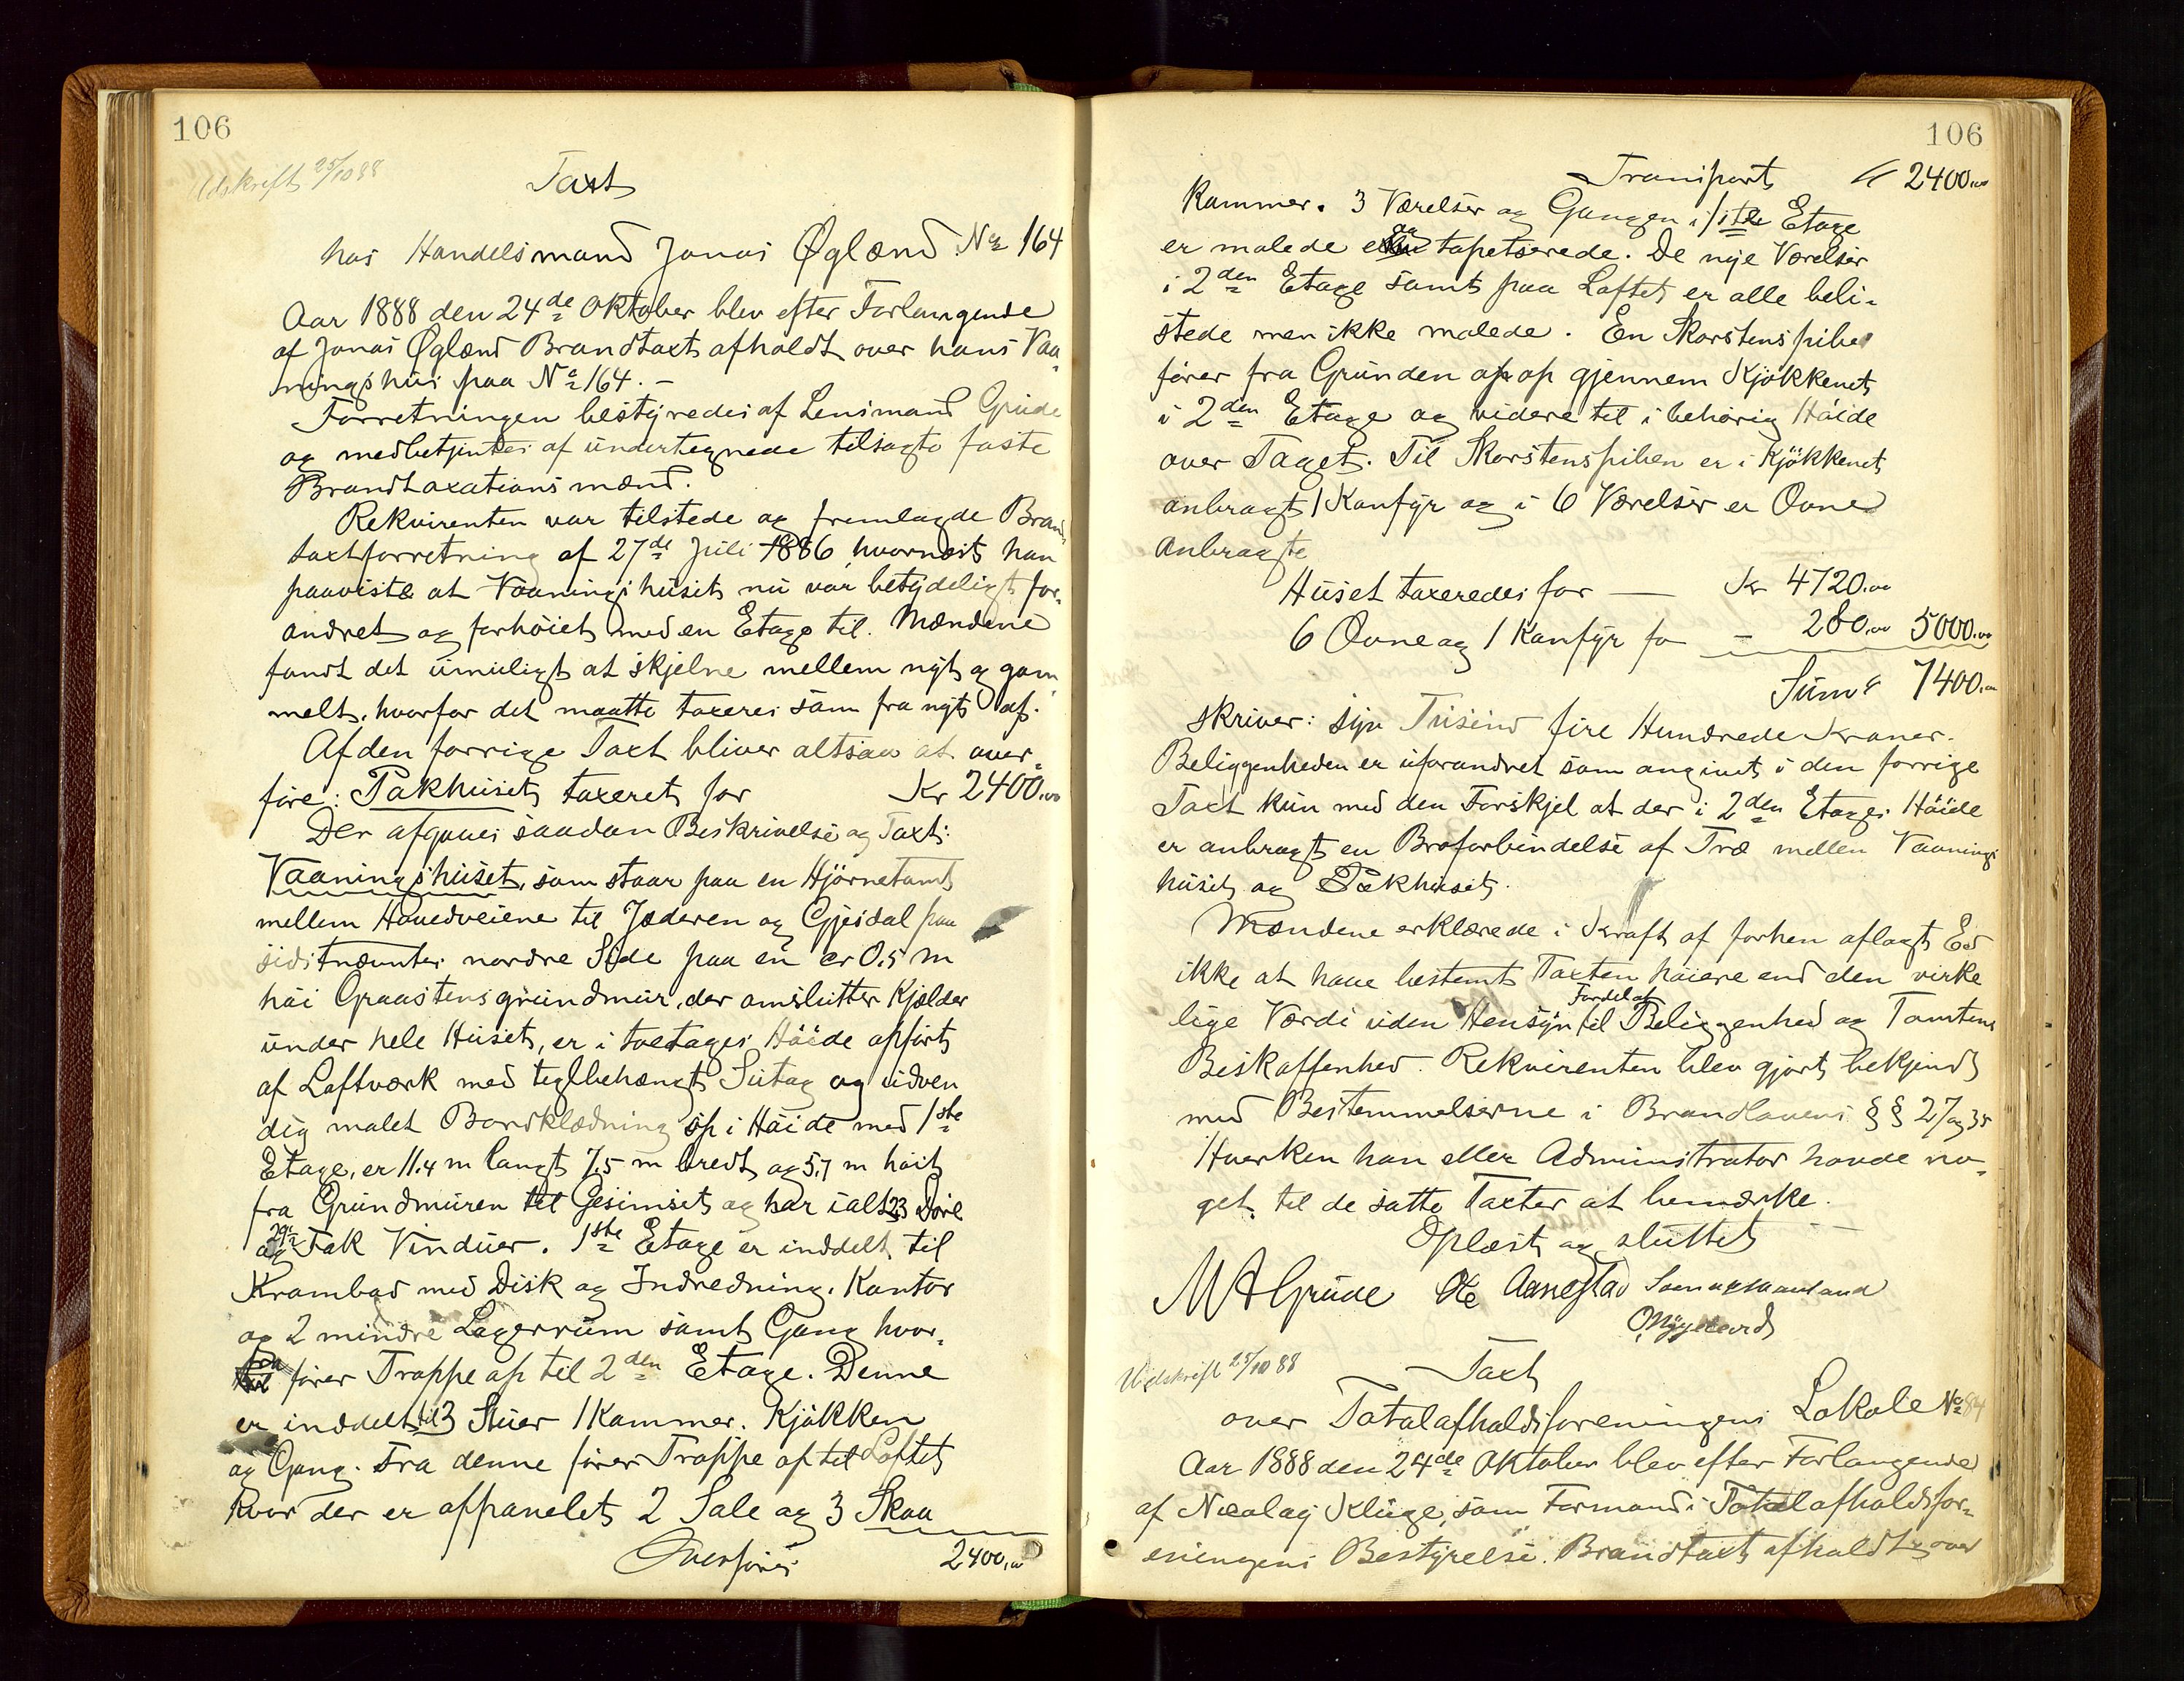 106
Udskrift 25/10 88
Taxt
hos Handelsmand Jonas Øglænd No 164
Aar 1888 den 24de Oktober blev efter Forlangende
af Jonas Øglænd Brandtaxt afholdt over hans Vaa-
ningshus paa No 164. –
Forretningen bestyredes af Lensmand Grude
og medbetjentes af undertegnede tilsagte faste
Brandtaxationsmænd.
Rekvirenten var tilstede og fremlagde Brand
taxtforretning af 27de Juli 1886, hvornæst han
paaviste at Vaaningshuset nu var betydeligt for-
andret og forhøiet med en Etage til. Mændene
fandt det umuligt at skjelne mellem nyt og gam-
melt, hvorfor det maatte taxeres som fra nyt af.
Af den forrige Taxt bliver altsaa at over-
føre: Pakhuset taxeret for Kr 2400,00
Der afgaves saadan Beskrivelse og Taxt:
Vaaningshuset, som staar paa en Hjørnetomt
mellem Hovedveiene til Jæderen og Gjesdal paa
sidstnævntes nordre Side paa en cr 0,5 m
høi Graastensgrundmur, der omslutter Kjælder
under hele Huset, er i toetages Høide opført
af Laftværk med teglbehængt Sutag og udven
dig malet Bordklædning op i Høide med 1ste
Etage, er 11,4 m langt 7,5 m bredt og 5,7 m høit
fra Grundmuren til Gesimset og har ialt 23 Døre
og Fak Vinduer. 1ste Etage er inddelt til
Krambod med Disk og Indredning, Kontor
og 2 mindre Lagerrum samt Gang hvor-
fra fører Trappe op til 2den Etage. Denne
er inddelt til 3 Stuer 1 Kammer. Kjøkken
og Gang. Fra denne fører Trappe op til Loftet
hvor der er oppanelet 2 Sale og 3 Skaa
Overføres 2400,00
106
Transport Kr 2400,00
Kammer. 3 Værelser og Gangen i 1ste Etage
er malede og tapetserede. De nye Værelser
i 2den Etage samt paa Loftet er alle beli-
stede men ikke malede. En Skorstenspibe
fører fra Grunden op op gjennem Kjøkkenet
i 2den Etage og videre til i behørig Høide
over Taget. Til Skorstenspiben er i Kjøkkenet
anbragt 1 Komfyr og i 6 Værelser er Ovne
anbragte
Huset taxeredes for — Kr 4720,00
6 Ovne og 1 Komfyr fo – 280,00 5000,00
Suma 7400,00
skriver: syv Tusind fire Hundrede Kroner.
Beliggenheden er uforandret som angivet i den forrige
Taxt kun med den Forskjel at der i 2den Etages Høide
er anbragt en Broforbindelse af Træ mellem Vaanings
huset og Pakhuset.
Mændene erklærede i Kraft af forhen aflagt Ed
ikke at have bestemt Taxten høiere end den virke
lige Værdi uden Hensyn til Fordel af Beliggenhed og Tomtens
Beskaffenhed. Rekvirenten blev gjort bekjendt
med Bestemmelserne i Brandlovens §§ 27 og 35
Hverken han eller Administrator havde no-
get til de satte Taxter at bemærke.
Oplæst og sluttet
M A Grude Ole Aanestad
Udskrift 25/10 88
Taxt
over Totalafholdsforeningens Lokale No 84
Aar 1888 den 24de Oktober blev efter Forlangende
af Nicolay Kluge, som Formand i Totalafholdsfor-
eningens Bestyrelse. Brandtaxt afholdt over